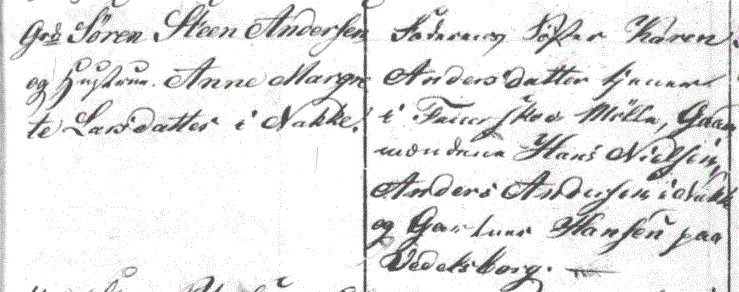 Grd Søren Steen Andersen
og Hustrue Anne Margre
te Larsdatter i Nakke.
Faderens Søster Karen
Andersdatter tjener
i Faurskov Mølle, Gaard
mændene Hans Nielsen,
Anders Andersen i Nakke
og Gartner Hansen paa
Wedelsborg.